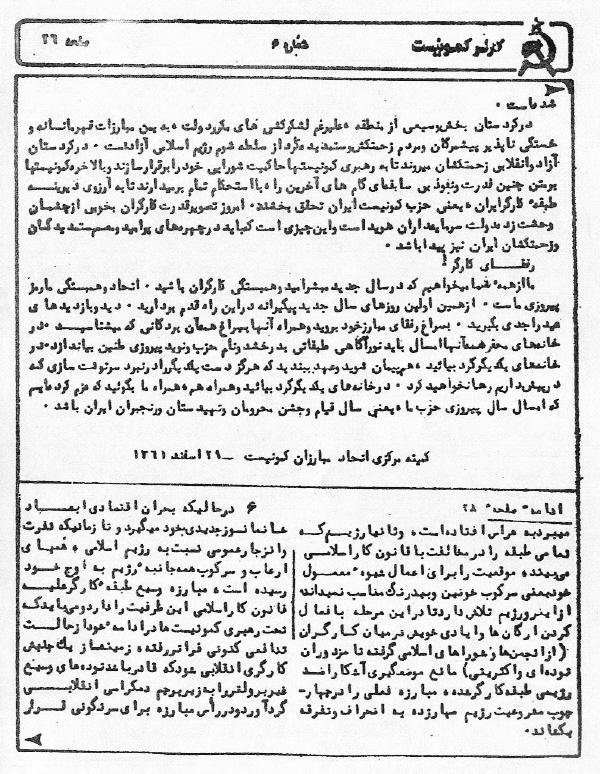 کارگر کمونیست
شماره ۶
صفحه ۲۶
شده است .
در کردستان بخش وسیعی از منطقه ، علیرغم لشکرکشی های مکرر دولت ، به یمن مبارزات قهرمانانه و
خستگی ناپذیر پیشمرگان و مردم زحمتکش و ستمدیده کرد از سلطه شوم رژیم اسلامی آزاد است . در کردستان
آزاد و انقلابی زحمتکشان میروند تا به رهبری کمونیستها حاکمیت شورایی خود را برقرار سازند و بالاخره کمونیستها
با چنین قدرت و نفوذ بی سابقه‌ای گام های آخرین را با استحکام تمام برمیدارند تا به آرزوی دیرینه
طبقه کارگر ایران ، یعنی حزب کمونیست ایران تحقق بخشند . امروز تصویر قدرت کارگران بخوبی از چشمان
وحشت زده دولت سرمایه‌داران هویدا است و این چیزی است که باید در چهره‌های پرامید و مصمم ستمدیدگان
و زحمتکشان ایران نیز پیدا باشد .
رفقـــای کارگر !
ما از همه شما میخواهیم که در سال جدید مبشر امید و همبستگی کارگران باشید . اتحاد و همبستگی ما رمز
پیروزی ماست . از همین اولین روزهای سال جدید پیگیرانه در این راه قدم بردارید . دید و بازدیدهای
عید را جدی بگیرید . بسراغ رفقای مبارز خود بروید و همراه آنها بسراغ همه آن بردگانی که میشناسید . در
خانه‌های محقر همه آنها امسال باید نور آگاهی طبقاتی بدرخشد و نام حزب و نوید پیروزی طنین بیاندازد . در
خانه‌های یکدیگر گرد بیائید ، هم‌پیمان شوید و عهد ببندید که هرگز دست یکدیگر را در نبرد سرنوشت سازی که
در پیش داریم رها نخواهید کرد . در خانه‌های یکدیگر گرد بیائید و همراه هم ، همراه ما بگوئید که عزم کرده‌ایم
که امسال سال پیروزی حزب ما ، یعنی سال قیام و جشن محرومان و تهیدستان و رنجبران ایران باشد .
کمیته مرکزی اتحاد مبارزان کمونیست ــ ۲۹ اسفند ۱۳۶۱
ادامه صفحه ۲۸
میبرد به هراس افتاده است ، و تنها رژیم که
تمامی طبقه را در مخالفت با قانون کار اسلامی
می‌بیند ، موقعیت را برای اعمال شیوه معمول
خود یعنی سرکوب خونین و بیدرنگ مناسب نمیداند ،
از اینرو رژیم تلاش دارد تا در این مرحله با فعال
کردن ارگان‌ها و ایادی خویش در میان کارگران
( از انجمن‌ها و شوراهای اسلامی گرفته تا مزدوران
توده‌ای و اکثریتی ) مانع موضعگیری آشکار ضد
رژیمی طبقه کارگر شده ، مبارزه فعلی را در چهار ـ
چوب مشروعیت رژیم مهار زده به انحراف و تفرقه
بکشاند .
۶ در حالیکه بحران اقتصادی ابعـــاد
خانمانسوز جدیدی بخود میگیرد و تا زمانیکه نفرت
و انزجار عمومی نسبت به رژیم اسلامی ، فضای
ارعاب و سرکوب همه جانبه رژیم به اوج خـــود
رسیده است ، مبارزه وسیع طبقه کارگر علیه
قانون کار اسلامی این ظرفیت را دارد و می‌باید که
تحت رهبری کمونیست‌ها در ادامه خود از حالت
تدافعی کنونی فراتر رفته ، زمینه‌ساز یک جنبش
کارگری انقلابی شود که قادر باشد توده‌های وسیع
غیر پرولتر را به زیر پرچم دمکراسی انقلابـــی
گرد آورد و در رأس مبارزه برای سرنگونی قـــرار